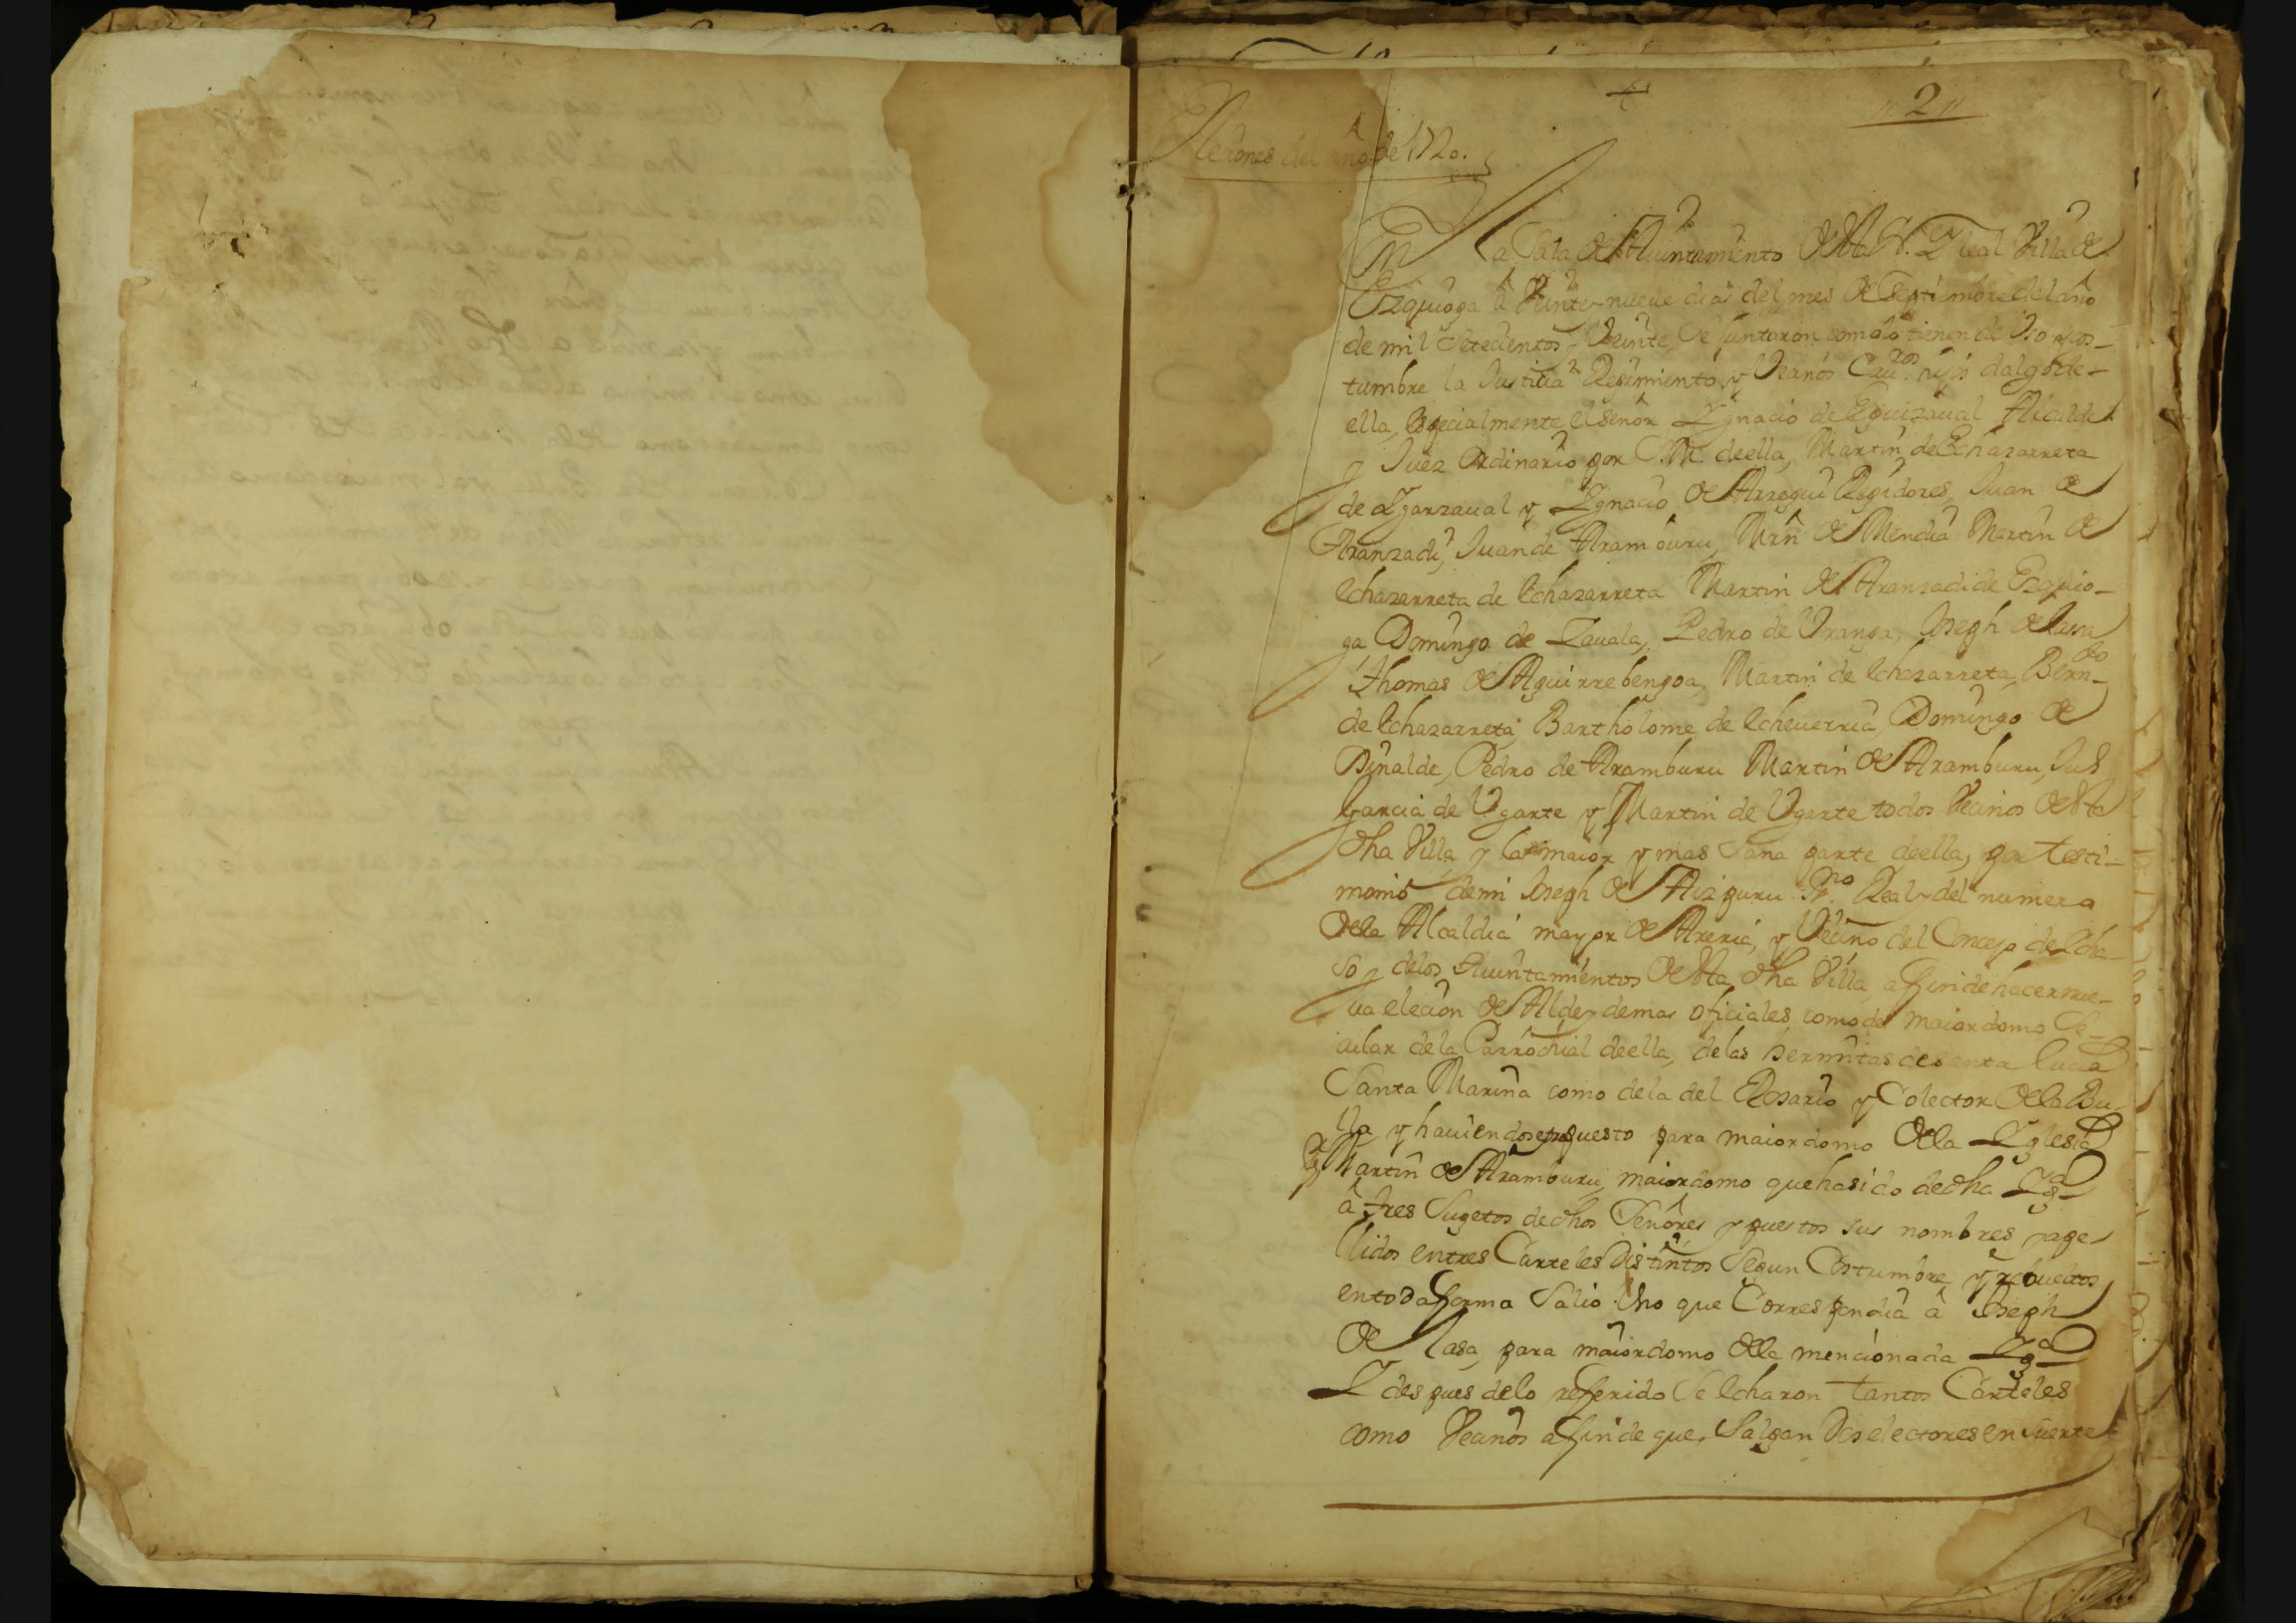 +
"2"
Eleciones del año de 1720.
En La Sala del Aiuntamiento desta N. Y leal Villa de
Ezquioga â Veinte y nueue dias del mes de Septiembre del año
de mil Setecientos y Veinte, Se Juntaron como lo tienen de Vso y cos-
tumbre la Justicia Regimiento, y Vecinos Cauros. hijos dalgo de-
ella, especialmente el señor Ygnacio de Eguizaual Alcalde
y Juez Ordinario por S.M. deella, Martin de Echazarreta
de Ygarzaual y Ygnacio de Arregui Regidores, Juan de
Aranzadi, Juan de Aramburu, Mrn de Mendia Martin de
Echazarreta de Echazarreta Martin de Aranzadi de Ezquio-
ga Domingo de Zauala, Pedro de Vranga, Joseph de Lassa
Thomas de Aguirrebengoa, Martin de Echazarreta, Berndo
de Echazarreta, Bartholome de Echeuerria Domingo de
Pedro de Aramburu Martin de Aramburu,
Garcia de Vgarte y Martin de Vgarte todos Vecinos desta
dha Villa y la maior y mas Sana parte deella, por testi-
monio demi Joseph de Aizpuru Sno. Real y del numero
dela Alcaldia mayor de Areria, y Vecino del Concejo de Icha-
so y delos Aiuntamientos desta dha Villa, affin de hacer nue-
ua elecion de Alde y demas oficiales, como de maiordomo Se-
cular dela Parrochial deella, delas hermitas de santa Lucia
Santa Marina como dela del Rosario y Colector dela Bu-
lla y hauiendo propuesto para maiordomo dela Yglesia
Martin de Aramburu, maiordomo que ha sido de dha Yga
â tres Sugetos de dhos Señores y puestos sus nombres y ape-
llidos en tres Carteles Distintos Segun Costumbre, y rebueltos
en toda fforma Salio Vno que Correspondia â Joseph
de Lasa, para maiordomo dela mencionada Yga
Y despues delo refferido Se Echaron tantos Carteles
como Vecinos affin de que, Salgan Dos electores en Suerte